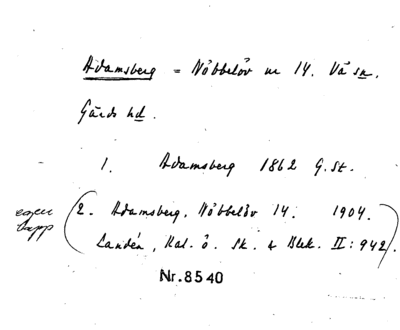 Adamsberg = Nöbbelöv nr 14. Vä sn.
Gärds hd.
1. Adamsberg 1862 G.St.
egen
lapp
(2. Adamsberg, Nöbbelöv 14. 1904.
Landén, Kal. ö. Sk. & Blek. II: 942).
Nr. 8540